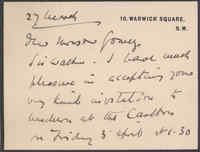 27 March
10, WARWICK SQUARE,
S.W.
Dear Monsieur
I have much
pleasure in accepting your
very kind invitation to
luncheon at the Carlton
on Friday 3 April at 1.30